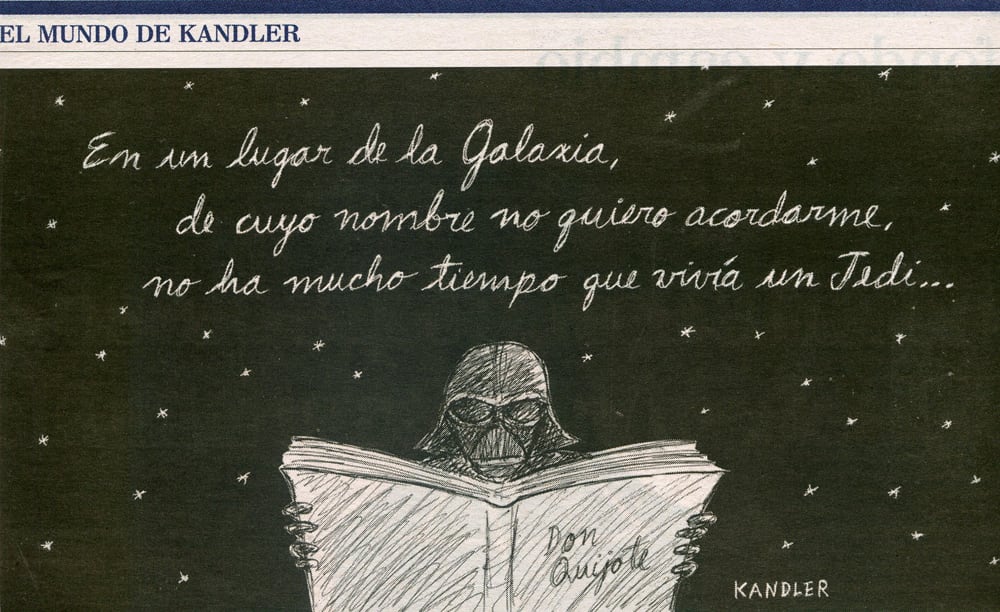 EL MUNDO DE KANDLER
En un lugar de la Galaxia,
de cuyo nombre no quiero acordarme,
no ha mucho tiempo que vivía un Jedi...
Don
Quijote
KANDLER